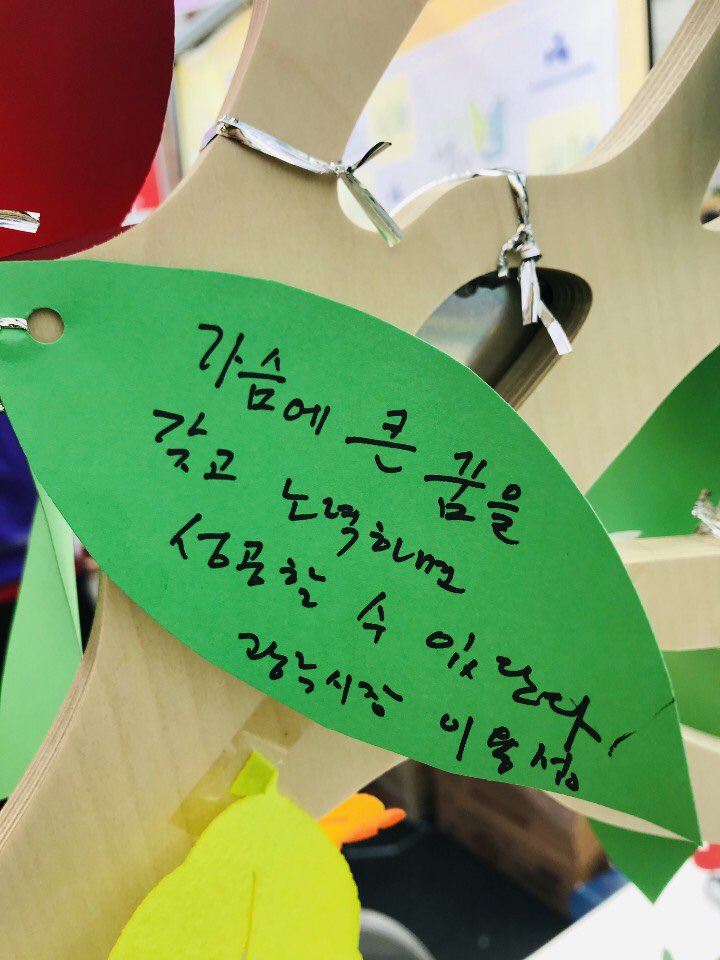 가슴에 큰 꿈을
갖고 노력하면
성공할 수 있단다!
시장 이